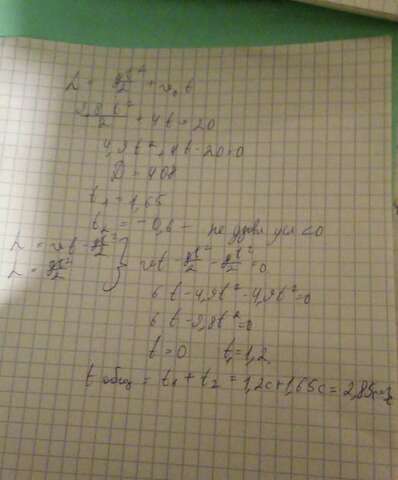 h = gt²/2 + v₀t
9,8t²/2 + 4t = 20
4,9t² + 4t - 20 = 0
D = 408
t₁ = 1,65
t₂ = -0,6 - не удовл усл < 0
h = vt - gt²/2
h = gt²/2 } vt - gt²/2 - gt²/2 = 0
6t - 4,9t² - 4,9t² = 0
6t - 9,8t² = 0
t = 0 t₁ = 1,2
t общ = t₁ + t₂ = 1,2с + 1,65с = 2,85с =